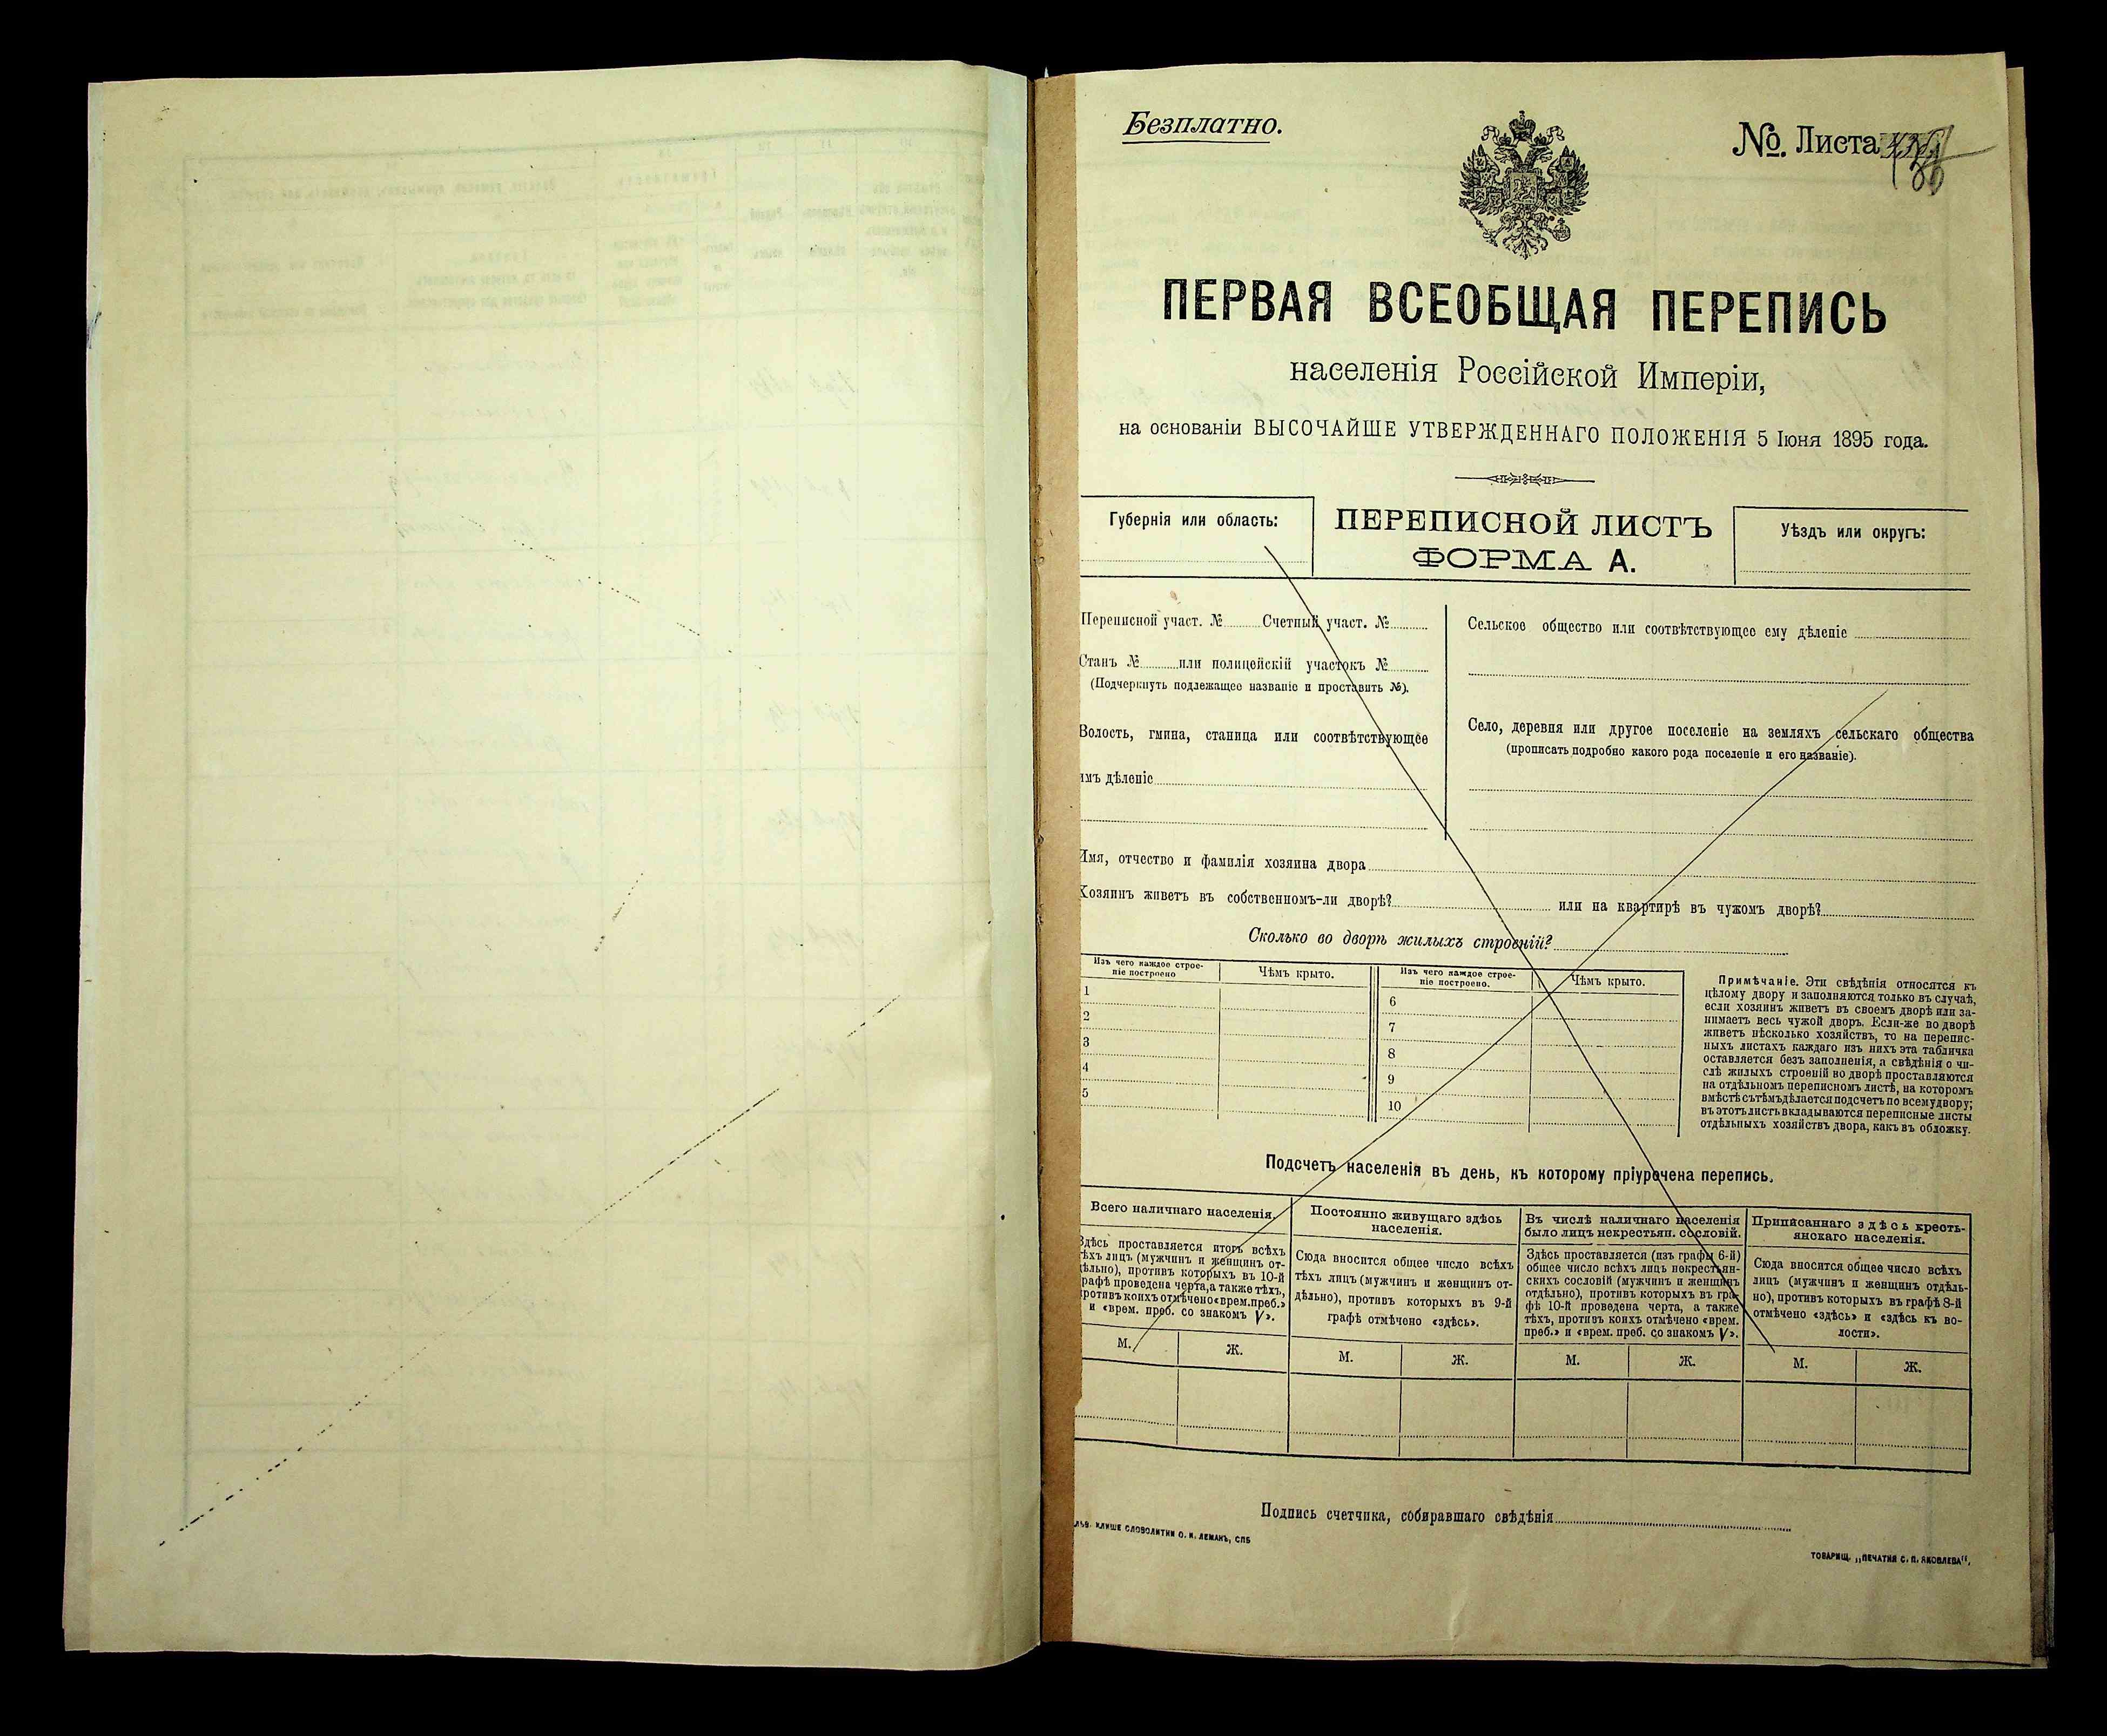 Безплатно.
№. Листа
ПЕРВАЯ ВСЕОБЩАЯ ПЕРЕПИСЬ
населенія Россійской Имперіи,
на основаніи ВЫСОЧАЙШЕ УТВЕРЖДЕННАГО ПОЛОЖЕНІЯ 5 Іюня 1895 года.
Губернія или область:
ПЕРЕПИСНОЙ ЛИСТЪ
ФОРМА А.
Уѣздъ или округъ:
Переписной участ. № Счетный участ. №
Станъ № или полицейскій участокъ №
(Подчеркнуть подлежащее названіе и проставить №).
Волость, гмина, станица или соотвѣтствующее
имъ дѣленіе
Сельское общество или соотвѣтствующее ему дѣленіе
Село, деревня или другое поселеніе на земляхъ сельскаго общества
(прописать подробно какого рода поселеніе и его названіе).
Имя, отчество и фамилія хозяина двора
Хозяинъ живетъ въ собственномъ-ли дворѣ? или на квартирѣ въ чужомъ дворѣ?
Сколько во дворѣ жилыхъ строеній?
Изъ чего каждое строе-
ніе построено
Чѣмъ крыто.
1
2
3
4
5
Изъ чего каждое строе-
ніе построено.
Чѣмъ крыто.
6
7
8
9
10
Примѣчаніе. Эти свѣдѣнія относятся къ
цѣлому двору и заполняются только въ случаѣ,
если хозяинъ живетъ въ своемъ дворѣ или за-
нимаетъ весь чужой дворъ. Если-же во дворѣ
живетъ нѣсколько хозяйствъ, то на перепис-
ныхъ листахъ каждаго изъ нихъ эта табличка
оставляется безъ заполненія, а свѣдѣнія о чи-
слѣ жилыхъ строеній во дворѣ проставляются
на отдѣльномъ переписномъ листѣ, на которомъ
вмѣстѣ съ тѣмъ дѣлается подсчетъ по всему двору;
въ этотъ листъ вкладываются переписные листы
отдѣльныхъ хозяйствъ двора, какъ въ обложку.
Подсчетъ населенія въ день, къ которому пріурочена перепись.
Всего наличнаго населенія.
Здѣсь проставляется итогъ всѣхъ
тѣхъ лицъ (мужчинъ и женщинъ от-
дѣльно), противъ которыхъ въ 10-й
графѣ проведена черта, а также тѣхъ,
противъ коихъ отмѣчено «врем. преб.»
и «врем. преб. со знакомъ V».
М. Ж.
Постоянно живущаго здѣсь
населенія.
Сюда вносится общее число всѣхъ
тѣхъ лицъ (мужчинъ и женщинъ от-
дѣльно), противъ которыхъ въ 9-й
графѣ отмѣчено «здѣсь».
М. Ж.
Въ числѣ наличнаго населенія
было лицъ некрестьян. сословій.
Здѣсь проставляется (изъ графы 6-й)
общее число всѣхъ лицъ некрестьян-
скихъ сословій (мужчинъ и женщинъ
отдѣльно), противъ которыхъ въ гра-
фѣ 10-й проведена черта, а также
тѣхъ, противъ коихъ отмѣчено «врем.
преб.» и «врем. преб. со знакомъ V».
М. Ж.
Приписаннаго здѣсь кресть-
янскаго населенія.
Сюда вносится общее число всѣхъ
лицъ (мужчинъ и женщинъ отдѣль-
но), противъ которыхъ въ графѣ 8-й
отмѣчено «здѣсь» и «здѣсь къ во-
лости».
М. Ж.
Подпись счетчика, собиравшаго свѣдѣнія
КЛИШЕ СЛОВОЛИТНИ О. И. ЛЕМАНЪ, СПБ
ТОВАРИЩ. „ПЕЧАТНЯ С. П. ЯКОВЛЕВА“.